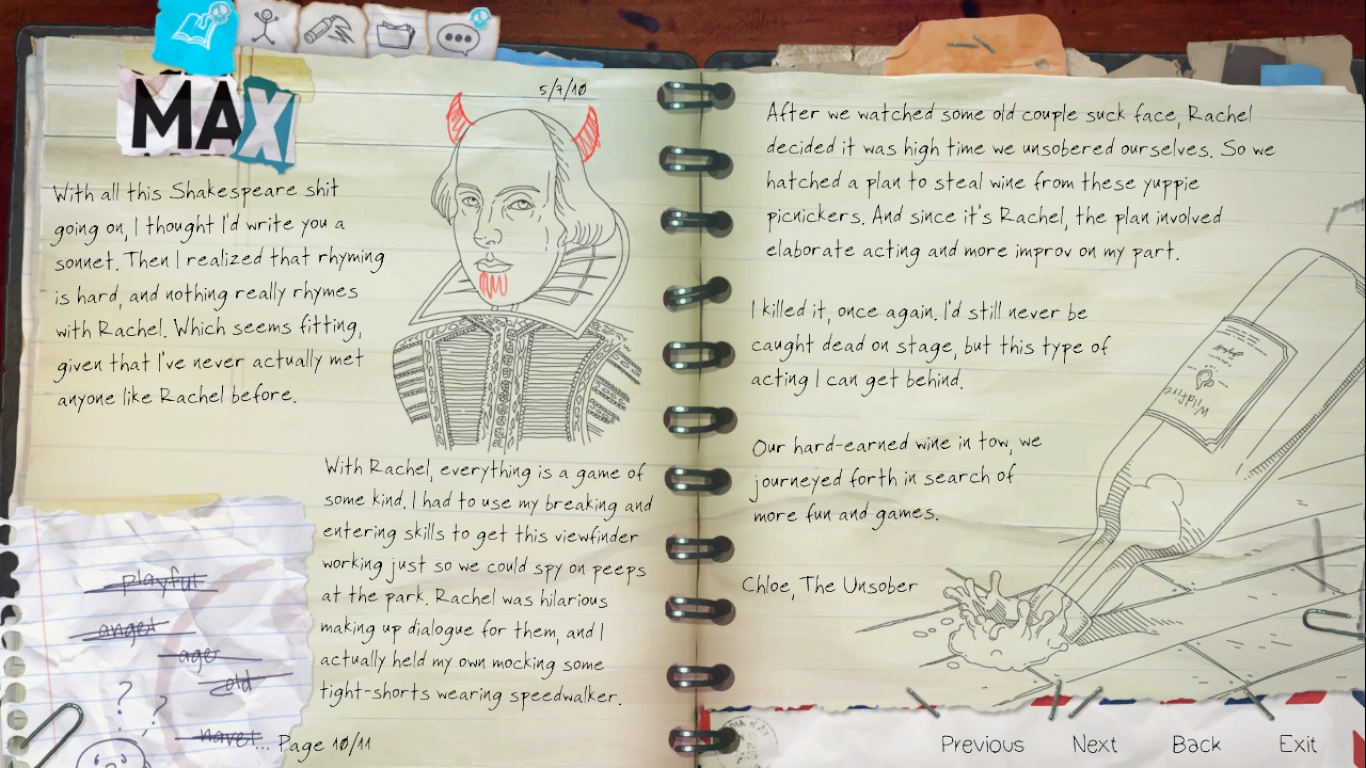 MAX
5/7/10
With all this Shakespeare shit
going on, I thought I'd write you a
sonnet. Then I realized that rhyming
is hard, and nothing really rhymes
with Rachel. Which seems fitting,
given that I've never actually met
anyone like Rachel before.
With Rachel, everything is a game of
some kind. I had to use my breaking and
entering skills to get this viewfinder
working just so we could spy on peeps
at the park. Rachel was hilarious
making up dialogue for them, and I
actually held my own mocking some
tight-shorts wearing speedwalker.
playful
angel
age
old
? ?
navel...
Page 10/11
After we watched some old couple suck face, Rachel
decided it was high time we unsobered ourselves. So we
hatched a plan to steal wine from these yuppie
picnickers. And since it's Rachel, the plan involved
elaborate acting and more improv on my part.
I killed it, once again. I'd still never be
caught dead on stage, but this type of
acting I can get behind.
Our hard-earned wine in tow, we
journeyed forth in search of
more fun and games.
Chloe, The Unsober
Wildfire
Previous
Next
Back
Exit